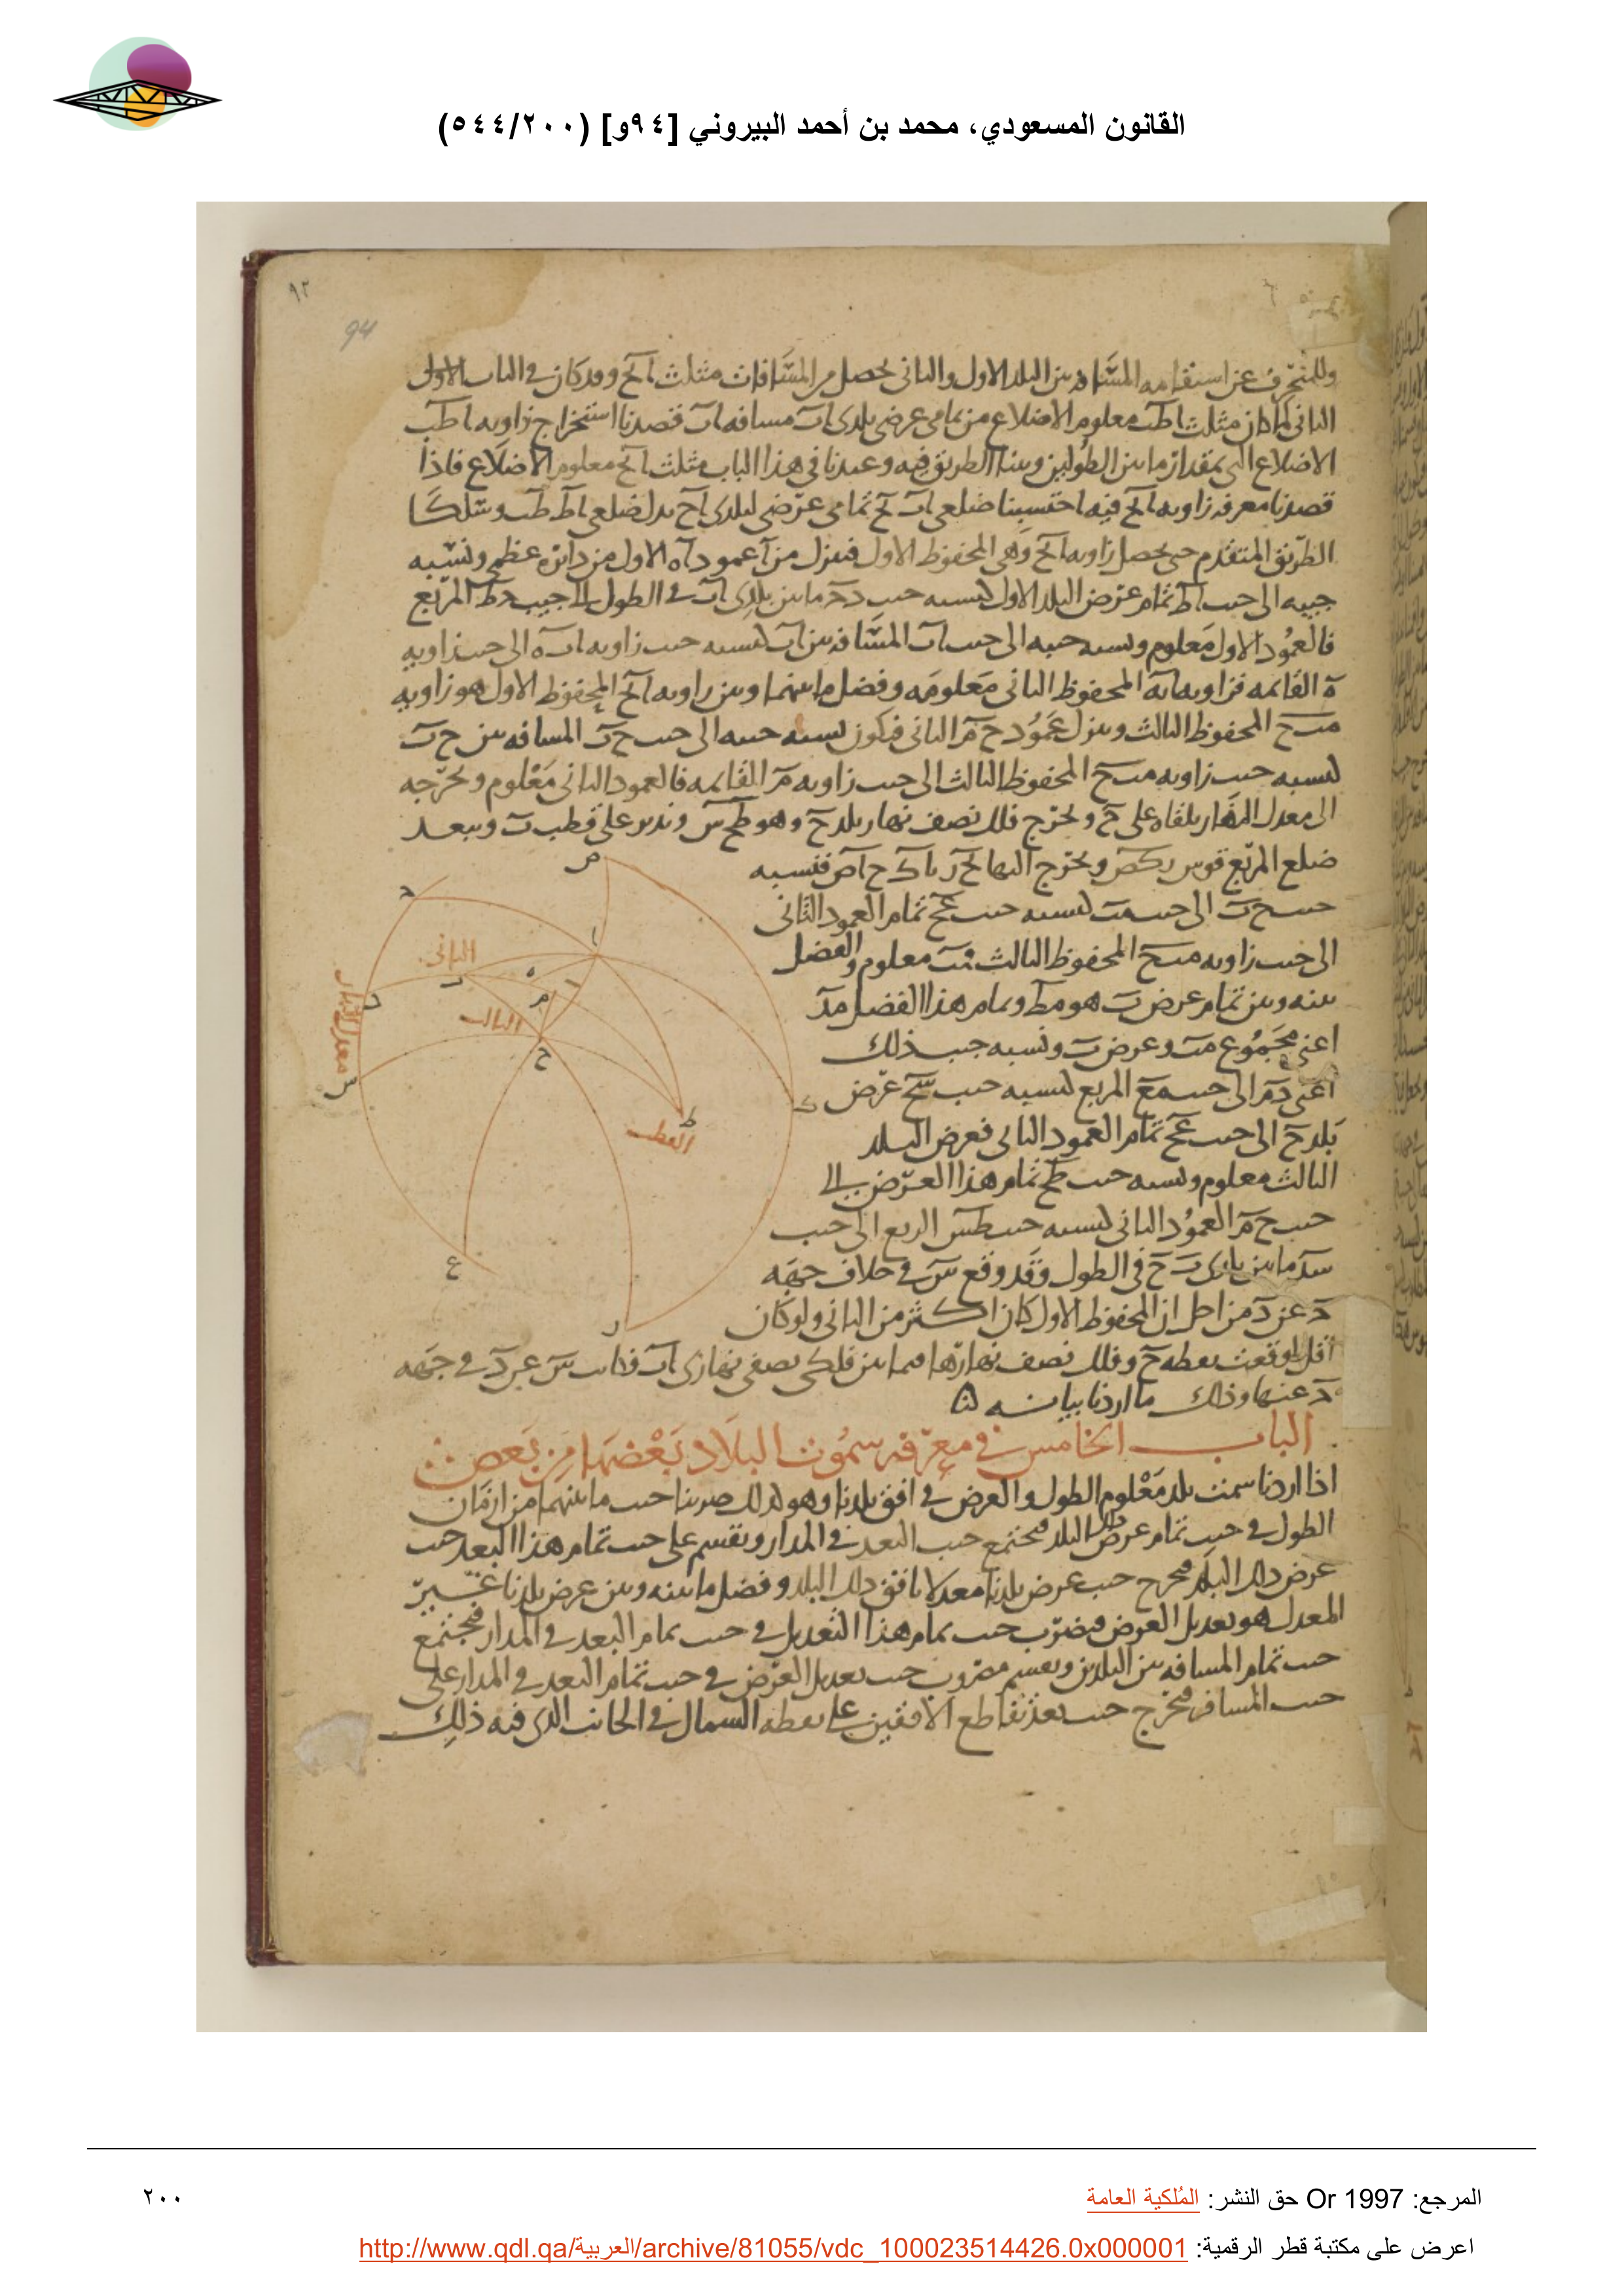 القانون المسعودي، محمد بن أحمد البيروني [٩٤و] (٥٤٤/٢٠٠)
٩٢
94
وللمنحرف عن استقامه المسافه بين البلد الاول والثانى يحصل من المسافات مثلث ابح وقد كان فى الباب الاول
الثانى لما كان مثلث اطب معلوم الاضلاع من تمامى عرضى بلدى اب مسافه اب قصدنا استخراج زاويه اطب
الاضلاع التى بمقدار ما بين الطولين وبينا الطريق فيه وعندنا فى هذا الباب مثلث ابح معلوم الاضلاع فاذا
قصدنا معرفه زاويه ابح فيه احتسبنا ضلعى اب بح تمامى عرضى لبلدى اح بدل ضلعى اط طب وسلكنا
الطريق المتقدم حتى يحصل زاويه ابح وهى المحفوظ الاول فننزل من آ عمود اه الاول من دائره عظمى ونسبه
جيبه الى جيب اط تمام عرض البلد الاول كنسبه جيب دح ما بين بلدى اب فى الطول الى جيب دط المربع
فالعمود الاول معلوم ونسبه جيبه الى جيب اب المسافه بين اب كنسبه جيب زاويه ابه الى جيب زاويه
ه القائمه فزاويه ابه المحفوظ الثانى معلومه وفضل ما بينهما وبين زاويه ابح المحفوظ الاول هو زاويه
مبح المحفوظ الثالث وننزل عمود ح م الثانى فيكون نسبه جيبه الى جيب ح ب المسافه بين ح ب
كنسبه جيب زاويه مبح المحفوظ الثالث الى جيب زاويه م القائمه فالعمود الثانى معلوم ونخرجه
الى معدل النهار يلقاه على ع ونخرج فلك نصف نهار بلد ح وهو طحس وندير على قطب ب وببعد
ضلع المربع قوس ركص ونخرج اليها بح ر باك ح اص فنسبه
جيب ح ب الى جيب مب كنسبه جيب عح تمام العمود الثانى
الى جيب زاويه مبح المحفوظ الثالث فمب معلوم والفضل
بينه وبين تمام عرض ب هو مط وتمام هذا الفضل مد
اعنى مجموع مب وعرض ب ونسبه جيب ذلك
اعنى دم الى جيب مع المربع كنسبه جيب سح عرض
بلد ح الى جيب عح تمام العمود الثانى فعرض البلد
الثالث معلوم ونسبه جيب طح تمام هذا العرض الى
جيب ح م العمود الثانى كنسبه جيب طس الربع الى جيب
سد ما بين بلدى ب ح فى الطول وقد وقع س فى خلاف جهه
د عن د من اجل ان المحفوظ الاول كان اكثر من الثانى ولو كان
اقل لوقعت نقطه ح وفلك نصف نهارها فيما بين فلكى نصفى نهارى اب فكانت س عن د فى جهه
د عنها وذلك ما اردنا بيانه
الباب الخامس فى معرفه سموت البلاد بعضها من بعض
اذا اردنا سمت بلد معلوم الطول والعرض فى افق بلدنا وهو كذلك ضربنا جيب ما بينهما من ازمان
الطول فى جيب تمام عرض ذلك البلد فيجتمع جيب البعد فى المدار ونقسم على جيب تمام هذا البعد جيب
عرض ذلك البلد فيخرج جيب عرض بلدنا معدلا بافق ذلك البلد وفضل ما بينه وبين عرض بلدنا غير
المعدل هو تعديل العرض فيضرب جيب تمام هذا التعديل فى جيب تمام البعد فى المدار فيجتمع
جيب تمام المسافه بين البلدين ونقسم مضروب جيب تعديل العرض فى جيب تمام البعد فى المدار على
جيب المسافه فيخرج جيب بعد تقاطع الافقين على نقطه الشمال فى الجانب الذى فيه ذلك
ص
ا
الثانى
ب
ه
م
الثالث
ح
معدل النهار
س
ك
ط
القطب
ع
ر
المرجع: Or 1997 حق النشر: المُلكية العامة
٢٠٠
اعرض على مكتبة قطر الرقمية: http://www.qdl.qa/العربية/archive/81055/vdc_100023514426.0x000001